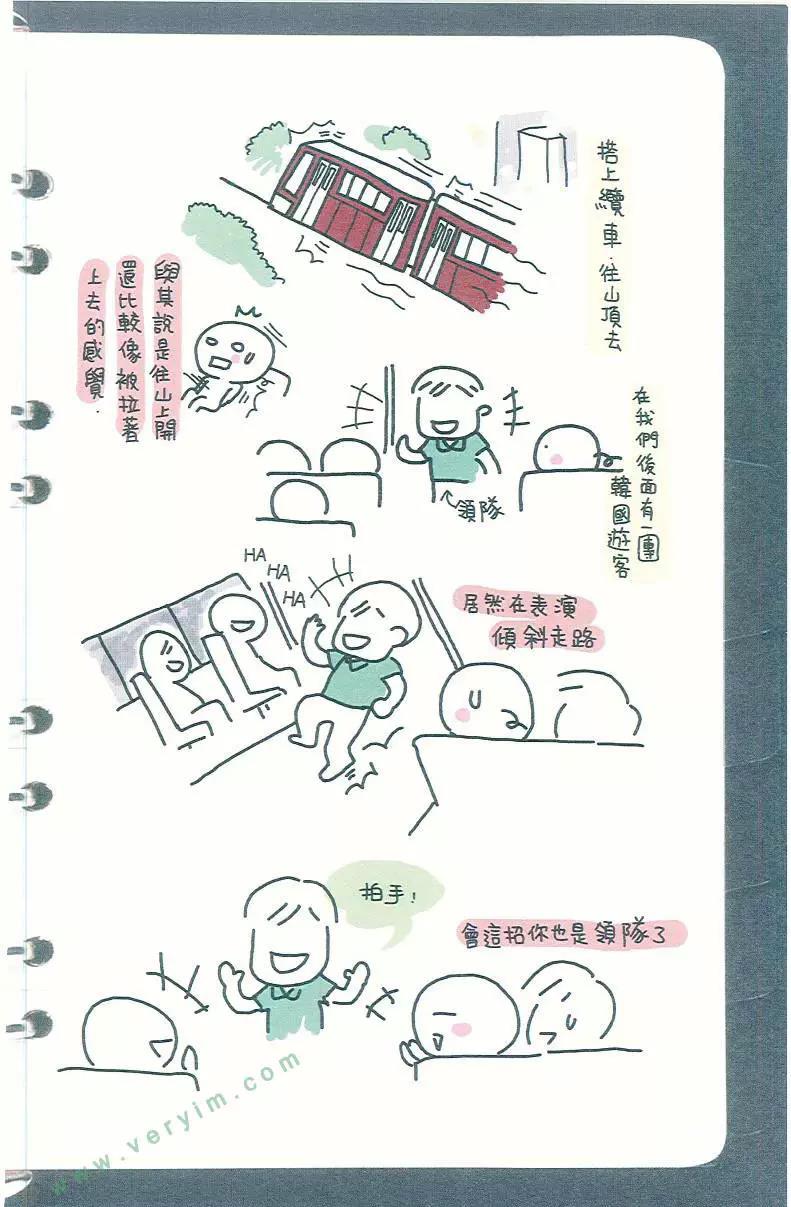 搭上纜車.往山頂去
與其說是往山上開
還比較像被拉著
上去的感覺.
在我們後面有一團
韓國遊客
領隊
HA
HA
HA
居然在表演
傾斜走路
拍手!
會這招你也是領隊了
www.veryim.com